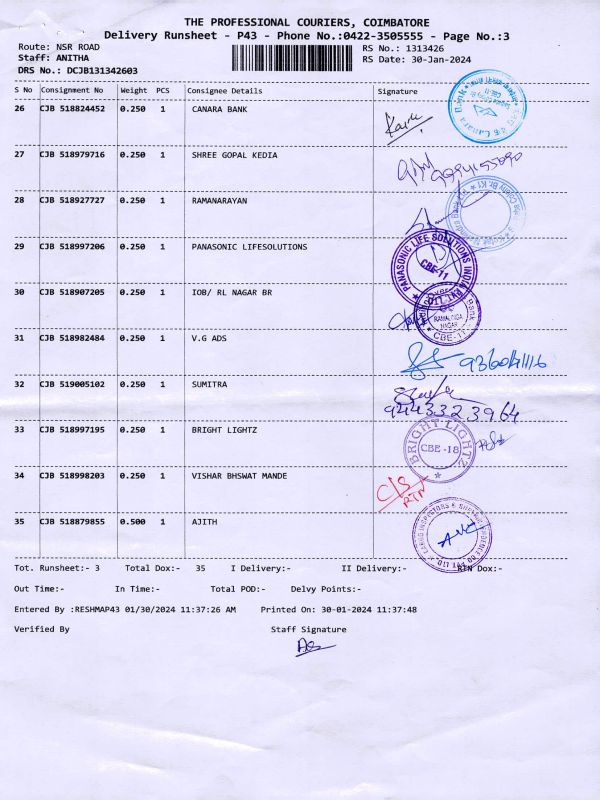 THE PROFESSIONAL COURIERS, COIMBATORE
Delivery Runsheet - P43 - Phone No.:0422-3505555 - Page No.:3
Route: NSR ROAD RS No.: 1313426
Staff: ANITHA RS Date: 30-Jan-2024
DRS No.: DCJB131342603
S No Consignment No Weight PCS Consignee Details Signature
26 CJB 518824452 0.250 1 CANARA BANK
27 CJB 518979716 0.250 1 SHREE GOPAL KEDIA
28 CJB 518927727 0.250 1 RAMANARAYAN
29 CJB 518997206 0.250 1 PANASONIC LIFESOLUTIONS
PANASONIC LIFE SOLUTIONS INDIA
CBE-11
30 CJB 518907205 0.250 1 IOB/ RL NAGAR BR
RAMALINGA
NAGAR
CBE-11
31 CJB 518982484 0.250 1 V.G ADS
32 CJB 519005102 0.250 1 SUMITRA
9443323964
33 CJB 518997195 0.250 1 BRIGHT LIGHTZ
BRIGHT LIGHTZ
CBE -18
34 CJB 518998203 0.250 1 VISHAR BHSWAT MANDE
C/S
RTN
35 CJB 518879855 0.500 1 AJITH
Tot. Runsheet:- 3 Total Dox:- 35 I Delivery:- II Delivery:- RTN Dox:-
Out Time:- In Time:- Total POD:- Delvy Points:-
Entered By :RESHMAP43 01/30/2024 11:37:26 AM Printed On: 30-01-2024 11:37:48
Verified By Staff Signature